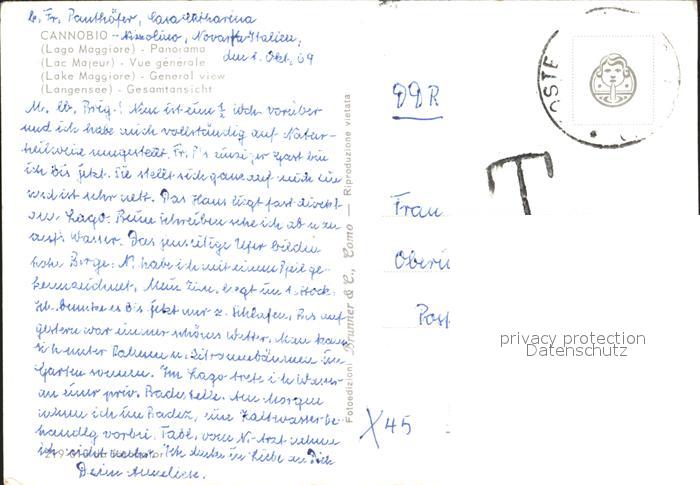 b. Fr. Panthöfer, Casa Catharina
CANNOBIO - Novara Italien,
(Lago Maggiore) - Panorama
den 1. Okt. 69
(Lac Majeur) - Vue générale
(Lake Maggiore) - General view
(Langensee) - Gesamtansicht
M. lb. Brig.! Nun ist eine ½ Woch. vorüber
und ich habe mich vollständig auf Natur-
heilweise umgestellt. Fr. P's einziger Gast bin
ich bis jetzt. Sie stellt sich ganz auf mich ein
und ist sehr nett. Das Haus liegt fast direkt
am Lago. Beim Schreiben sehe ich ab u. zu
aufs Wasser. Das jenseitige Ufer bilden
hohe Berge. N. habe ich mit einem Pfeil ge-
kennzeichnet. Mein Zim. liegt im 1. Stock.
Ich benutze es bis jetzt nur z. Schlafen. Bis auf
gestern war immer schönes Wetter. Man kann
sich unter Palmen u. Zitronenbäumen im
Garten sonnen. Im Lago trete ich Wasser
an einer priv. Badestelle. Am Morgen
nehme ich im Badez. eine Kaltwasserbe-
handlg vorbei. Tabl. vom N.-Arzt nehme
ich nicht mehr. Ich denke in Liebe an Dich
Deine Anneliese.
Fotoedizioni Brunner & C., Como — Riproduzione vietata
DDR
Frau
Post
X 45
OSTE
T
privacy protection
Datenschutz